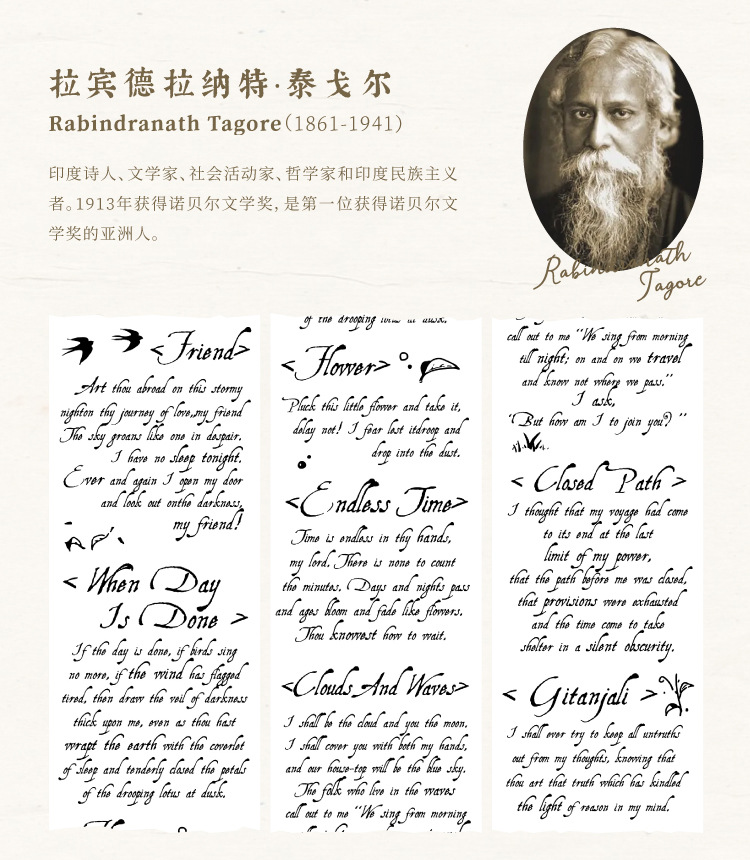 拉宾德拉纳特·泰戈尔
Rabindranath Tagore(1861-1941)
印度诗人、文学家、社会活动家、哲学家和印度民族主义
者。1913年获得诺贝尔文学奖,是第一位获得诺贝尔文
学奖的亚洲人。
Rabindranath
Tagore
<Friend>
Art thou abroad on this stormy
nighton thy journey of love,my friend
The sky groans like one in despair.
I have no sleep tonight.
Ever and again I open my door
and look out onthe darkness,
my friend!
< When Day
Is Done >
If the day is done, if birds sing
no more, if the wind has flagged
tired, then draw the veil of darkness
thick upon me, even as thou hast
wrapt the earth with the coverlet
of sleep and tenderly closed the petals
of the drooping lotus at dusk.
of the drooping lotus at dusk.
< Flower>
Pluck this little flower and take it,
delay not! I fear lest itdroop and
drop into the dust.
<Endless Time>
Time is endless in thy hands,
my lord. There is none to count
the minutes, Days and nights pass
and ages bloom and fade like flowers.
Thou knowest how to wait.
<Clouds And Waves>
I shall be the cloud and you the moon.
I shall cover you with both my hands,
and our house-top will be the blue sky.
The folk who live in the waves
call out to me “We sing from morning
call out to me “We sing from morning
till night; on and on we travel
and know not where we pass.”
I ask,
“But how am I to join you? ”
< Closed Path >
I thought that my voyage had come
to its end at the last
limit of my power,
that the path before me was closed,
that provisions were exhausted
and the time come to take
shelter in a silent obscurity.
< Gitanjali >
I shall ever try to keep all untruths
out from my thoughts, knowing that
thou art that truth which has kindled
the light of reason in my mind.